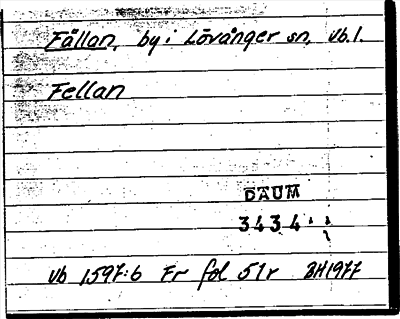 Fällan, by i Lövånger sn, Vb.l.
Fellan
DAUM
3434
Vb 1597:6 Fr fol 51r BH1977